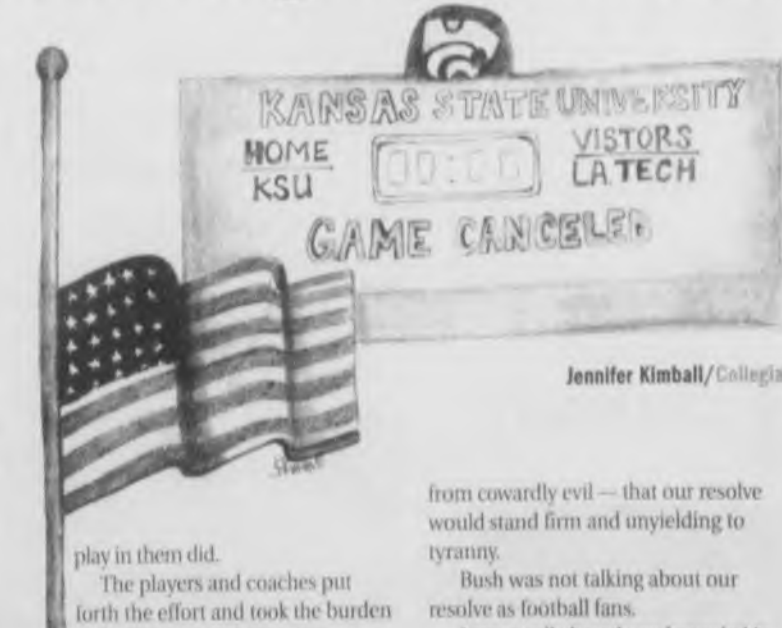 KANSAS STATE UNIVERSITY
HOME
KSU
00:00
VISTORS
LA TECH
GAME CANCELED
Jennifer Kimball/Collegia
play in them did.
The players and coaches put
forth the effort and took the burden
from cowardly evil — that our resolve
would stand firm and unyielding to
tyranny.
Bush was not talking about our
resolve as football fans.